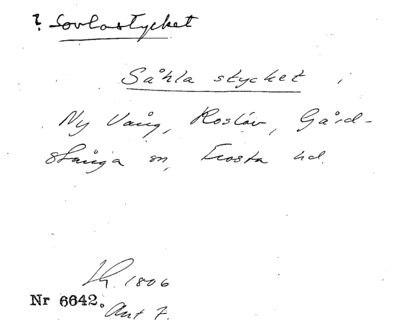 ? Sovlastycket
Såhla stycket,
Ny Vång, Roslöv, Gård-
stånga sn, Frosta hd.
Lh. 1806
Nr 6642. Akt 7.